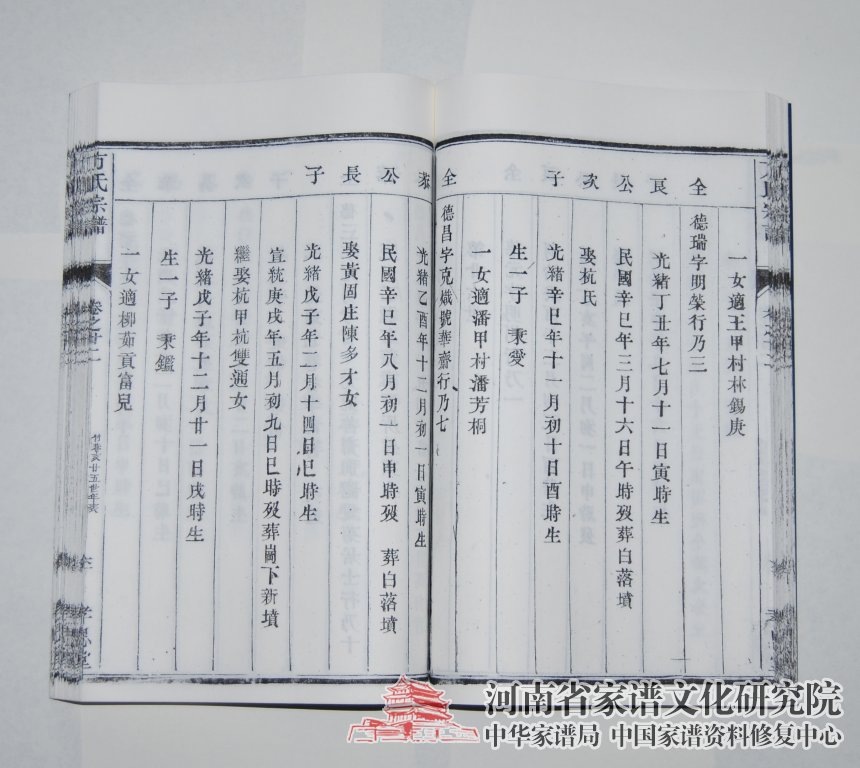 一女適王甲村林錫庚
全良公次子
德瑞字明榮行乃三
光緒丁丑年七月十一日寅時生
民國辛巳年三月十六日午時歿葬白落墳
娶杭氏
光緒辛巳年十一月初十日酉時生
生一子 秉愛
一女適潘甲村潘芳桐
全 公長子
德昌字克熾號華齋行乃七
光緒乙酉年十二月初一日寅時生
民國辛巳年八月初一日申時歿 葬白落墳
娶黃固庄陳多才女
光緒戊子年二月十四日巳時生
宣統庚戌年五月初九日巳時歿葬崗下新墳
繼娶杭甲杭雙通女
光緒戊子年十二月廿一日戌時生
生一子 秉鑑
一女適柳茹貢富兒
方氏宗譜
卷之廿二
廿五世年表
河南省家谱文化研究院
中华家谱局 中国家谱资料修复中心